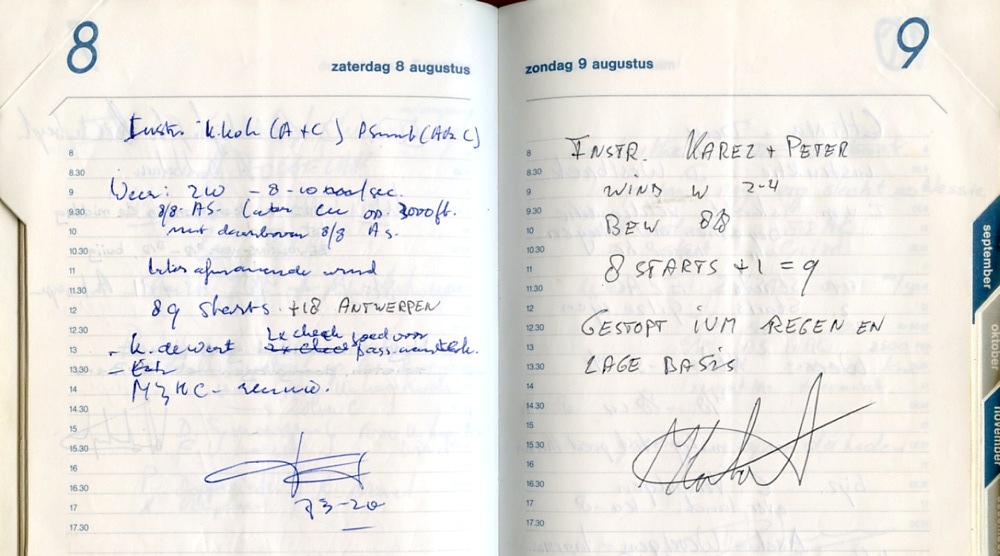 8
zaterdag 8 augustus
Instr. K.Kok (A+C)
8
8.30
Weer: ZW - 8-10 /sec.
9
8/8 AS. later cu op 3000ft.
9.30
met daarboven 8/8 As.
10
10.30
later afnemende wind
11
11.30
89 starts +18 ANTWERPEN
12
12.30
2x check goed voor
- K. de Wert
13
13.30
14
14.30
15
15.30
16
16.30
73-20
17
17.30
9
zondag 9 augustus
INSTR. KAREL + PETER
8
8.30
WIND W 2-4
9
9.30
BEW 8/8
10
10.30
8 STARTS +1 = 9
11
11.30
12
GESTOPT IVM REGEN EN
12.30
13
LAGE BASIS
13.30
14
14.30
15
15.30
16
16.30
17
17.30
september
oktober
november